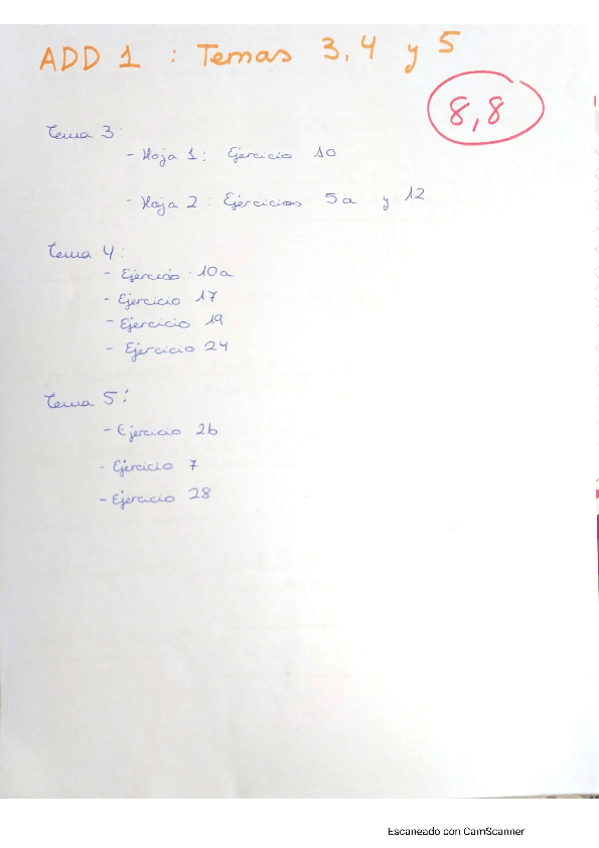 ADD 1 : Temas 3, 4 y 5
8,8
Tema 3:
- Hoja 1: Ejercicio 10
- Hoja 2: Ejercicios 5a y 12
Tema 4:
- Ejercicio 10a
- Ejercicio 17
- Ejercicio 19
- Ejercicio 24
Tema 5:
- Ejercicio 2b
- Ejercicio 7
- Ejercicio 28
Escaneado con CamScanner